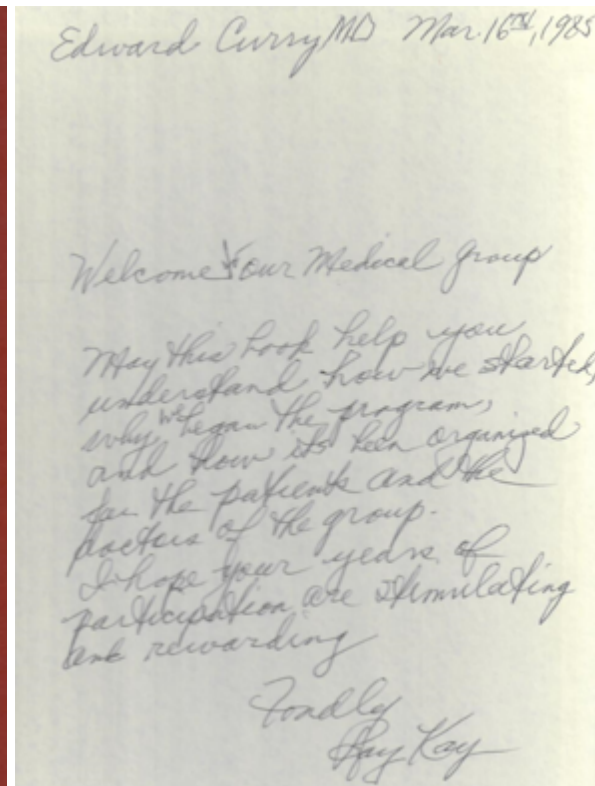 Edward Curry MD Mar. 16th, 1985
Welcome to our Medical Group
May this book help you
understand how we started,
why we began the program,
and how its been organized
for the patients and the
doctors of the group.
I hope your years of
participation are stimulating
and rewarding
Fondly
Ray Kay